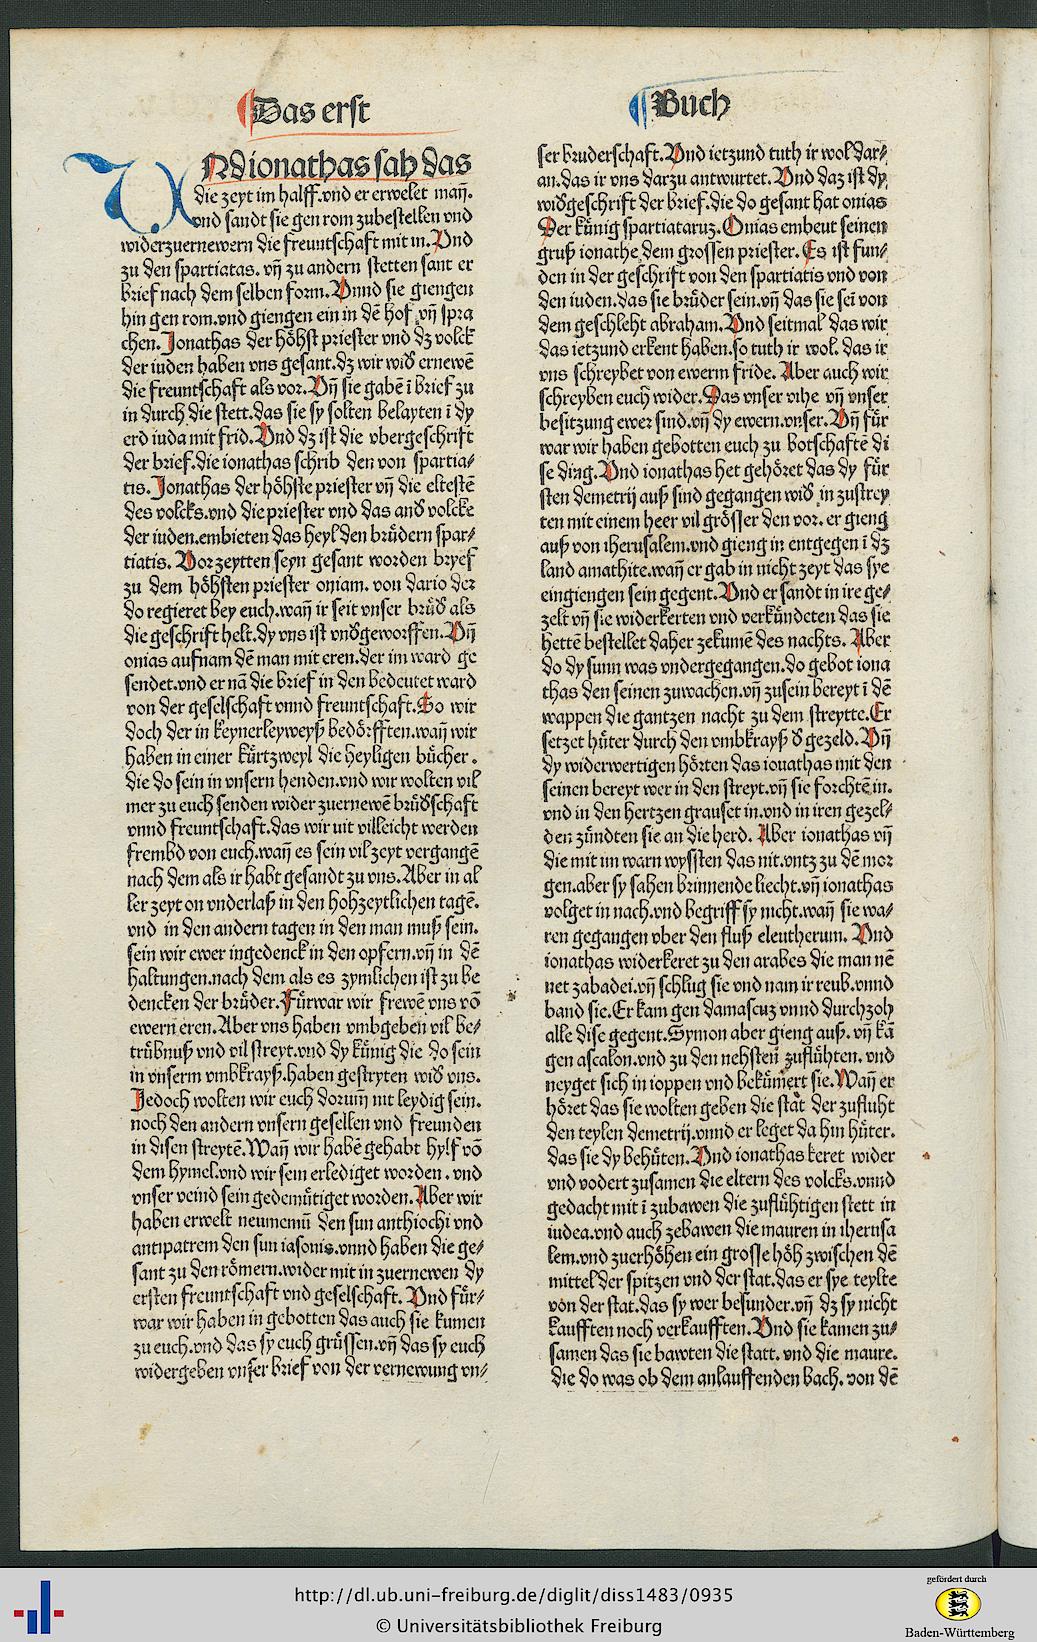 Das erst
Buch
VNdionathas sah das
die zeyt im halff.vnd er erwelet mañ.
vnd sandt sie gen rom zubestellen vnd
widerzuernewern die freuntschaft mit in.Vnd
zu den spartiatas. vñ zu andern stetten sant er
brief nach dem selben form.Vnnd sie giengen
hin gen rom.vnd giengen ein in dē hof .vñ spra
chen. Jonathas der höhst priester vnd dz volck
der iuden haben vns gesant.dz wir wid̕ ernewē
die freuntschaft als vor.Vñ sie gabē ī brief zu
in durch die stett.das sie sy solten belayten ī dy
erd iuda mit frid.Vnd dz ist die vbergeschrift
der brief.die ionathas schrib den von spartia⸗
tis. Jonathas der höhste priester vñ die eltestē
des volcks.vnd die priester vnd das and̕ volcke
der iuden.embieten das heyl den brüdern spar⸗
tiatis. Vor zeytten seyn gesant worden bryef
zu dem höhsten priester oniam. von dario der
do regieret bey euch.wañ ir seit vnser brüd̕ als
die geschrift helt.dy vns ist vnd̕geworffen.Vñ
onias aufnam dē man mit eren.der im ward ge
sendet.vnd er nā die brief in den bedeutet ward
von der geselschaft vnnd freuntschaft.So wir
doch der in keynerleyweyß bedörfften.wañ wir
haben in einer kürtzweyl die heyligen bücher .
die do sein in vnsern henden.vnd wir wolten vil
mer zu euch senden wider zuernewē brüd̕schaft
vnnd freuntschaft.das wir nit villeicht werden
frembd von euch.wañ es sein vil zeyt vergangē
nach dem als ir habt gesandt zu vns.Aber in al
ler zeyt on vnderlaß in den hohzeytlichen tagē.
vnd in den andern tagen in den man muß sein.
sein wir ewer ingedenck in den opfern.vñ in dē
haltungen.nach dem als es zymlichen ist zu be
dencken der brüder.Fürwar wir frewē vns vō
ewern eren.Aber vns haben vmbgeben vil be⸗
trübnuß vnd vil streyt.vnd dy künig die do sein
in vnserm vmbkrayß.haben gestryten wid̕ vns.
Jedoch wolten wir euch dorum̄ nit leydig sein.
noch den andern vnsern gesellen vnd freunden
in disen streytē.Wañ wir habē gehabt hylf vō
dem hymel.vnd wir sein erlediget worden . vnd
vnser veind sein gedemütiget worden.Aber wir
haben erwelt neumeniū den sun anthiochi vnd
antipatrem den sun iasonis.vnnd haben die ge⸗
sant zu den römern.wider mit in zuernewen dy
ersten freuntschaft vnd geselschaft. Vnd für⸗
war wir haben in gebotten das auch sie kumen
zu euch.vnd das sy euch grüssen.vñ das sy euch
widergeben vnser brief von der vernewung vn⸗
ser bruderschaft.Vnd ietzund tuth ir wol dar⸗
an.das ir vns darzu antwurtet. Vnd daz ist dy
wid̕geschrift der brief.die do gesant hat onias
Der künig spartiataruz. Onias embeut seinen
gruß ionathe dem grossen priester. Es ist fun⸗
den in der geschrift von den spartiatis vnd von
den iuden.das sie brüder sein.vñ das sie seī von
dem geschleht abraham.Vnd seitmal das wir
das ietzund erkent haben.so tuth ir wol. das ir
vns schreybet von ewerm fride. Aber auch wir
schreyben euch wider.Das vnser vihe vñ vnser
besitzung ewer sind.vñ dy ewern.vnser.Vñ für
war wir haben gebotten euch zu botschaftē di
se ding.Vnd ionathas het gehöret das dy für
sten demetrij auß sind gegangen wid̕ in zustrey
ten mit einem heer vil grösser den vor. er gieng
auß von iherusalem.vnd gieng in entgegen ī dz
land amathite.wañ er gab in nicht zeyt das sye
eingiengen sein gegent.Vnd er sandt in ire ge⸗
zelt vñ sie widerkerten vnd verkündeten das sie
hettē bestellet daher zekumē des nachts. Aber
do dy sunn was vndergegangen.do gebot iona
thas den seinen zuwachen.vñ zusein bereyt ī dē
wappen die gantzen nacht zu dem streytte.Er
setzet hüter durch den vmbkrayß d̕ gezeld.Vñ
dy widerwertigen hörten das ionathas mit den
seinen bereyt wer in den streyt.vñ sie forchtē in.
vnd in den hertzen grauset in.vnd in iren gezel⸗
den zündten sie an die herd. Aber ionathas vñ
die mit im warn wyssten das nit.vntz zu dē mor
gen.aber sy sahen brinnende liecht.vñ ionathas
volget in nach.vnd begriff sy nicht.wañ sie wa⸗
ren gegangen vber den fluß eleutherum. Vnd
ionathas widerkeret zu den arabes die man nē
net zabadei.vñ schlug sie vnd nam ir reub.vnnd
band sie.Er kam gen damascuz vnnd durchzoh
alle dise gegent.Symon aber gieng auß. vñ kā
gen ascalon.vnd zu den nehsten zuflühten. vnd
neyget sich in ioppen vnd bekümert sie.Wañ er
höret das sie wolten geben die stat der zufluht
den teylen demetrij.vnnd er leget da hin hüter.
das sie dy behüten. Vnd ionathas keret wider
vnd vodert zusamen die eltern des volcks.vnnd
gedacht mit ī zubawen die zuflühtigen stett in
iudea.vnd auch zebawen die mauren in iherusa
lem.vnd zuerhöhen ein grosse höh zwischen dē
mittel der spitzen vnd der stat.das er sye teylte
von der stat.das sy wer besunder.vñ dz sy nicht
kaufften noch verkaufften.Vnd sie kamen zu⸗
samen das sie bawten die statt. vnd die maure.
die do was ob dem anlauffenden bach. von dē
http://dl.ub.uni-freiburg.de/diglit/diss1483/0935
© Universitätsbibliothek Freiburg
gefördert durch
Baden-Württemberg